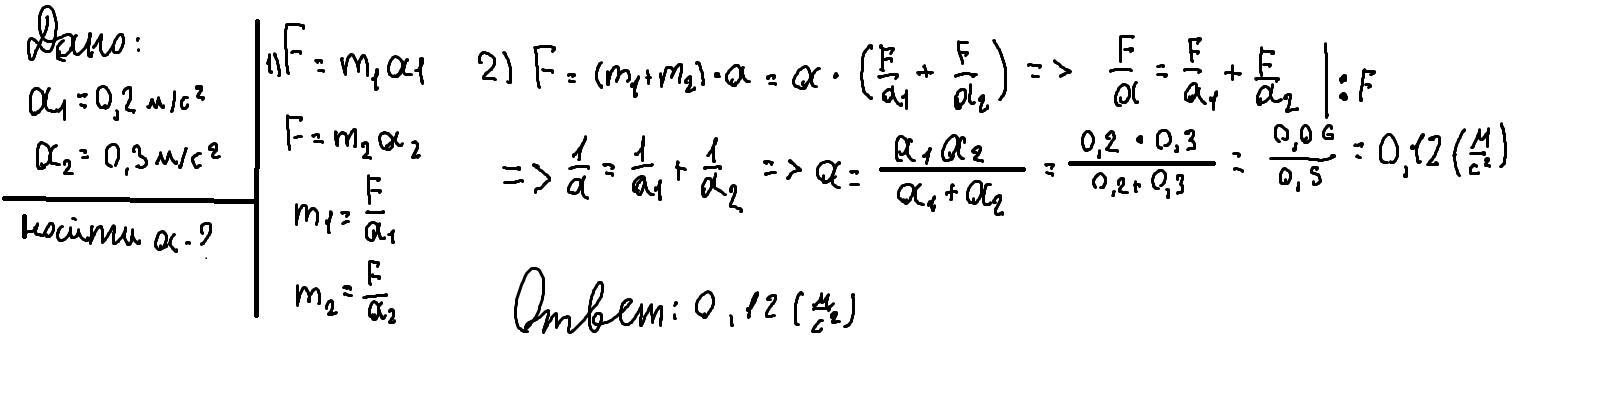 Дано:
a₁ = 0,2 м/с²
a₂ = 0,3 м/с²
найти a - ?
1) F = m₁a₁
F = m₂a₂
m₁ = F/a₁
m₂ = F/a₂
2) F = (m₁+m₂)·a = a · (F/a₁ + F/a₂) => F/a = F/a₁ + F/a₂ |:F
=> 1/a = 1/a₁ + 1/a₂ => a = a₁a₂/(a₁+a₂) = 0,2 · 0,3/0,2+0,3 = 0,06/0,5 = 0,12 (м/с²)
Ответ: 0,12 (м/с²)